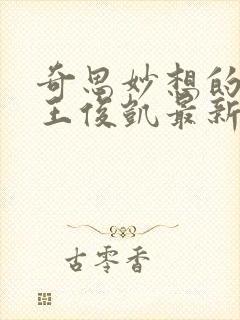 奇思妙想的
王俊凯最新
古零香